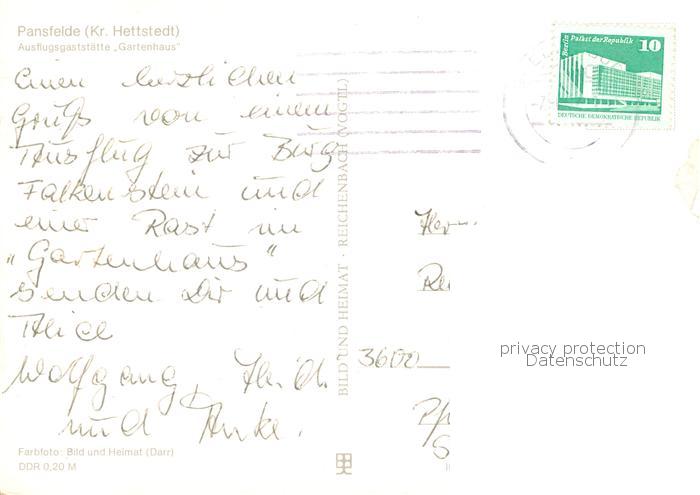 Pansfelde (Kr. Hettstedt)
Ausflugsgaststätte „Gartenhaus"
Einen herzlichen
Gruß von einem
Ausflug zur Burg
Falkenstein und
einer Rast im
„Gartenhaus"
senden Dir und
Alice
Wolfgang,
und Anke.
Farbfoto: Bild und Heimat (Darr)
DDR 0,20 M
BILD UND HEIMAT · REICHENBACH (VOGTL)
Berlin Palast der Republik
10
DEUTSCHE DEMOKRATISCHE REPUBLIK
Herrn
3600
privacy protection
Datenschutz